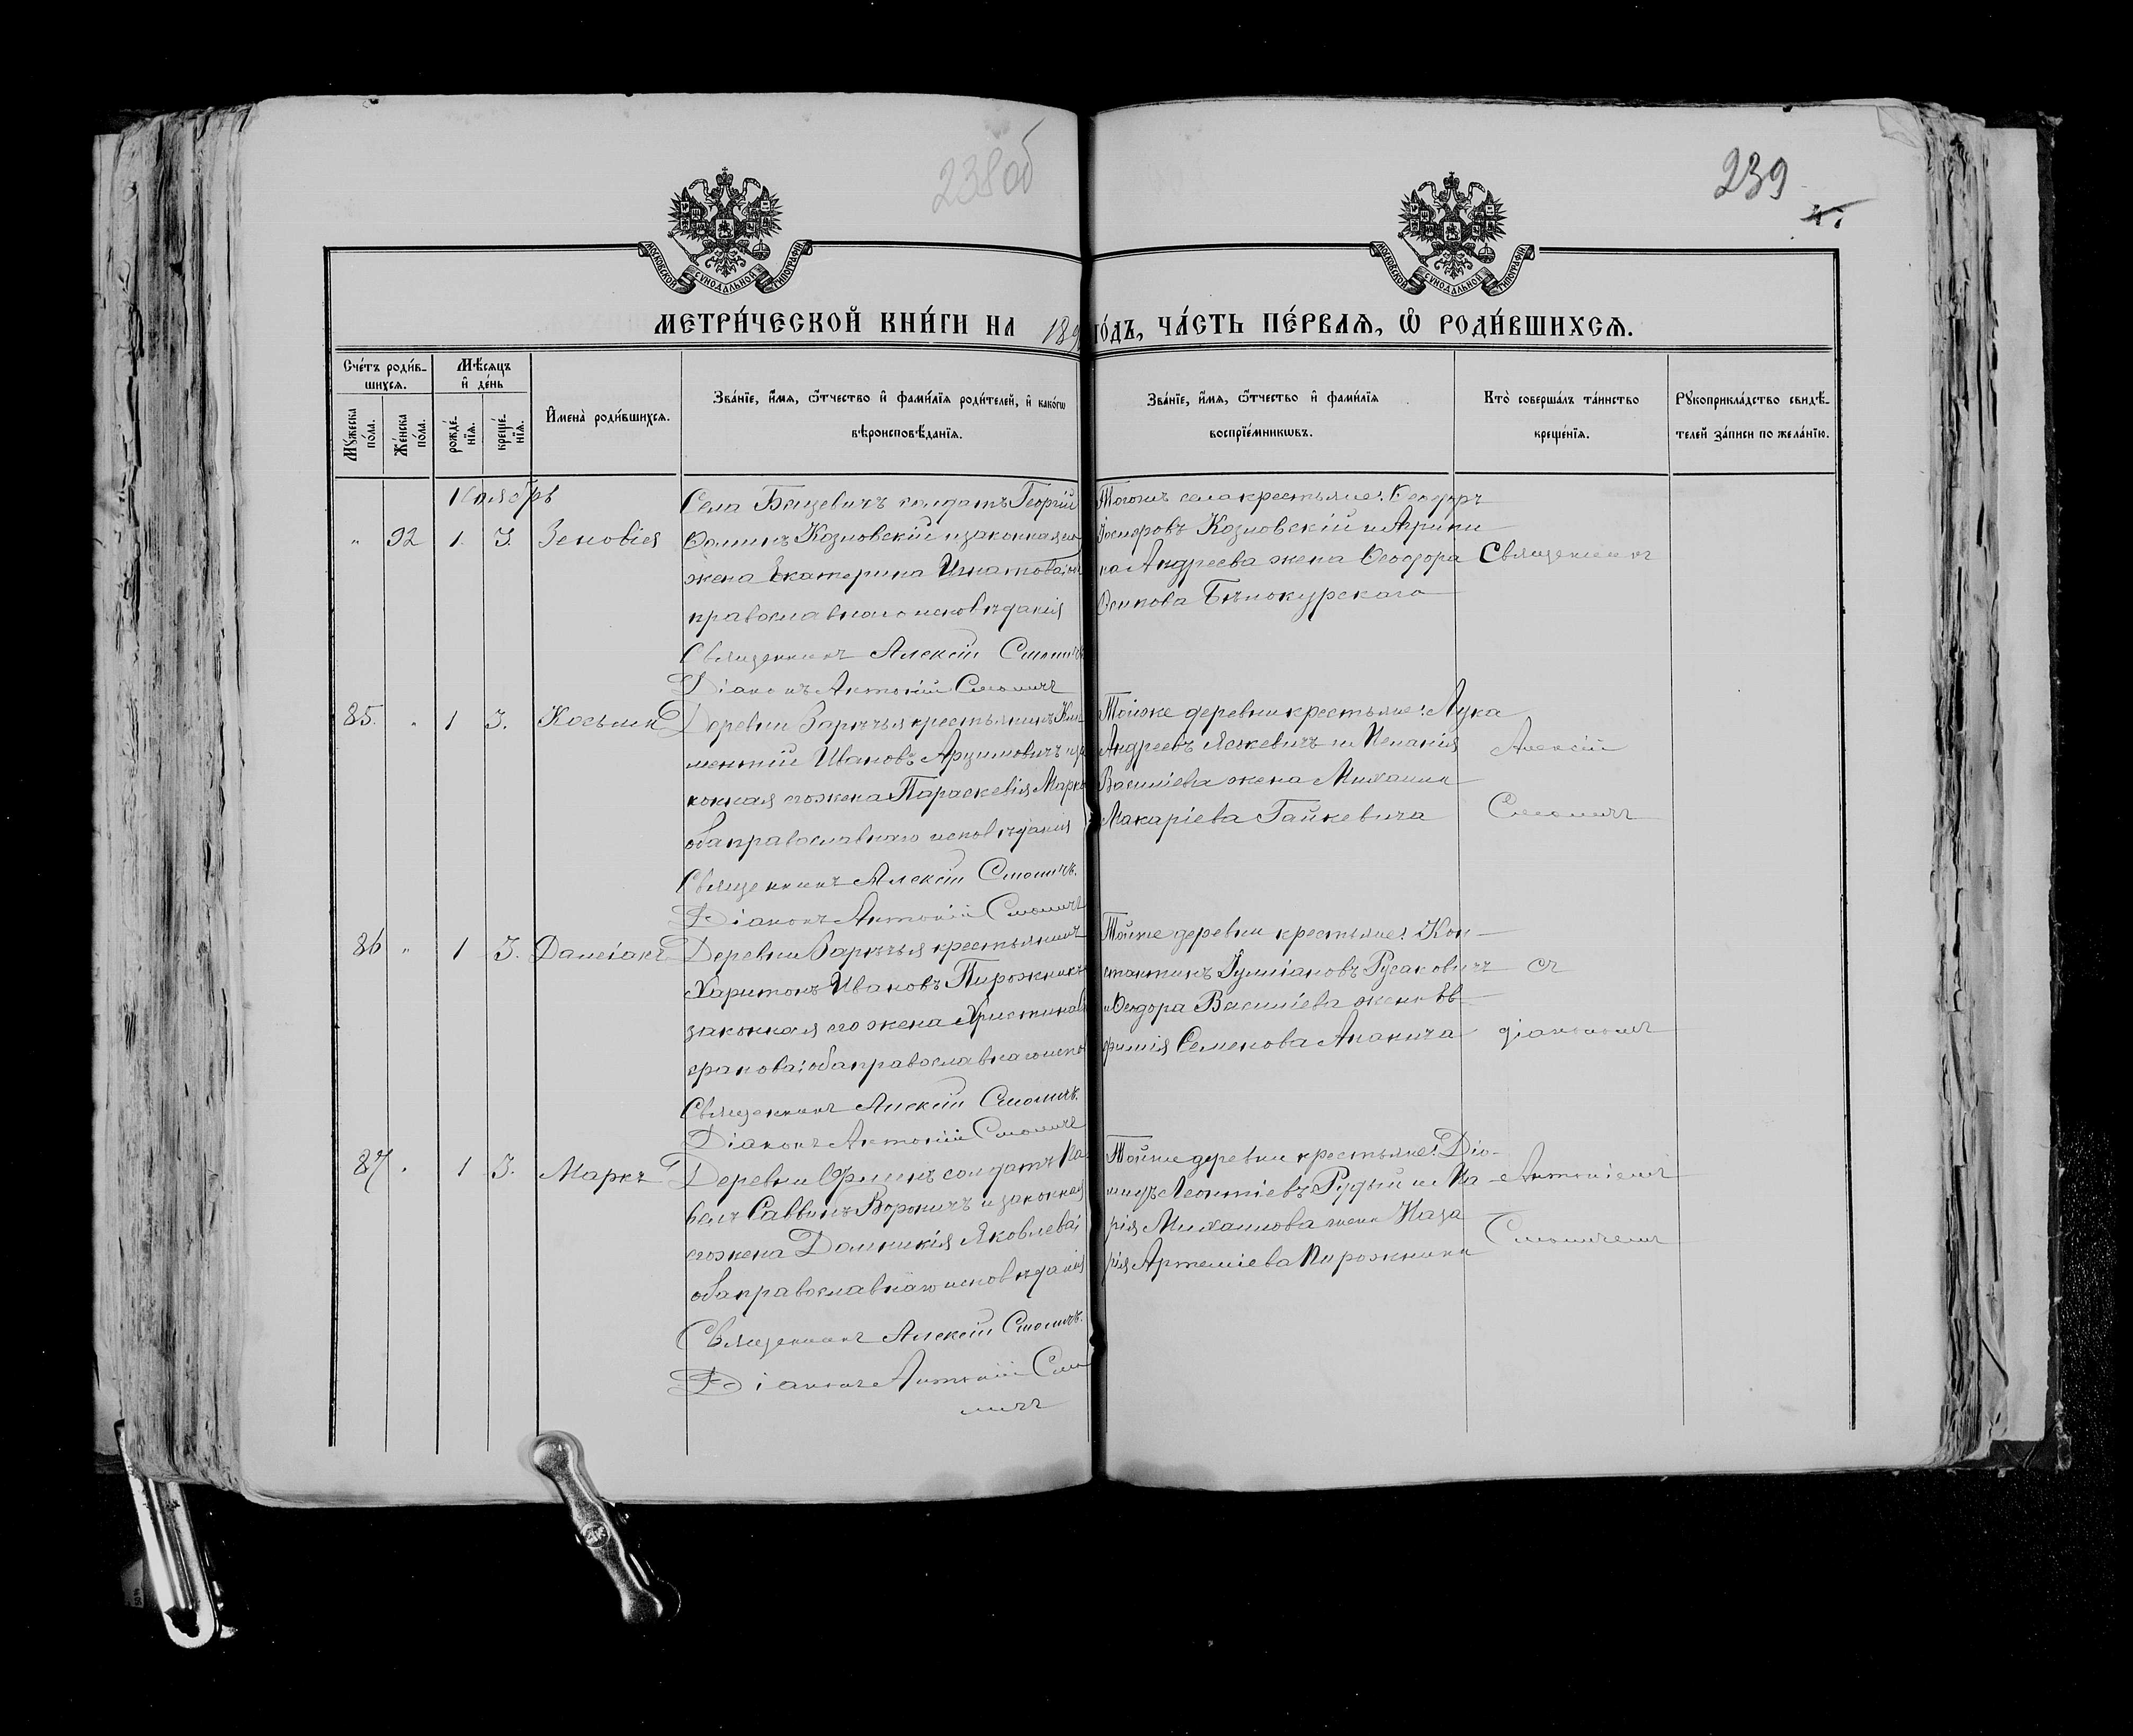 238об
239
МОСКОВСКОЙ СУНОДАЛЬНОЙ ТИПОГРАФІИ
МОСКОВСКОЙ СУНОДАЛЬНОЙ ТИПОГРАФІИ
МЕТРИ́ЧЕСКОЙ КНИ́ГИ НА 189 ГО́ДЪ, ЧА́СТЬ ПЕ́РВАЯ, Ѡ РОДИ́ВШИХСЯ.
Сче́тъ роди́в-
шихся.
Мѣ́сяцъ
и҆ де́нь
Му́жеска
по́ла.
Же́нска
по́ла.
рожде́-
нїя.
креще́-
нїя.
И҆мена̀ роди́вшихся.
Зва́нїе, и҆́мя, ѻ҆́тчество и҆ фами́лїя роди́телей, и҆ како́гѡ
вѣроисповѣ́данїя.
Зва́нїе, и҆́мя, ѻ҆́тчество и҆ фами́лїя
воспрїе́мникѡвъ.
Кто̀ соверша́лъ та́инство
креще́нїя.
Рукоприкла́дство свидѣ́-
телей за́писи по жела́нїю.
Ноябрь
" 92 1. 3. Зеновія
Села солдатъ Георгій
Ѳоминъ Козловскій и законная его
жена Екатерина Игнатова; оба
православнаго исповѣданія
Священникъ Алексій Смоличъ
Діаконъ Антоній Смоличъ
Тогожъ села крестьяне: Ѳеодоръ
Козловскій и Агрипи
на Андреева жена Ѳеодора
Осипова Бѣлокурскаго
Священникъ
85. " 1 3. Косьма
Деревни Зарѣчья крестьянинъ Кли
ментій Ивановъ Арцимовичъ и за
конная его жена Параскевія Марко
оба православнаго исповѣданія
Священникъ Алексій Смоличъ.
Діаконъ Антоній Смоличъ
Тойже деревни крестьяне: Лука
Андреевъ Яскевичъ и Меланія
Василіева жена Михаила
Макаріева Гайкевича
Алексій
Смоличъ
86 " 1 3. Даміанъ
Деревни Зарѣчья крестьянинъ
Харитонъ Ивановъ Пирожникъ
законная его жена Христина
оба православнаго испо
Священникъ Алексій Смоличъ.
Діаконъ Антоній Смоличъ
Тойже деревни крестьяне: Кон-
стантинъ Іуліановъ Русаковичъ
и Ѳеодора Василіева жена Ев-
фимія Семенова Ананича
съ
діакономъ
87. " 1 3. Маркъ
Деревни солдатъ Па
велъ Саввинъ Вороничъ и законная
его жена Домникія Яковлева;
оба православнаго исповѣданія
Священникъ Алексій Смоличъ.
Діаконъ Антоній Смо
личъ
Тойже деревни крестьяне: Діо-
мидъ Леонтіевъ Рудый и Ма
рія Михаилова жена Наза
рія Артеміева Пирожника
Антоніемъ
Смоличемъ